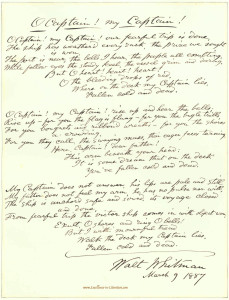 O Captain! my Captain!
O Captain! my Captain! our fearful trip is done,
The ship has weathered every rack, the prize we sought
is won,
The port is near, the bells I hear, the people all exulting,
While follow eyes the steady keel, the vessel grim and daring;
But O heart! heart! heart!
O the bleeding drops of red,
Where on the deck my Captain lies,
Fallen cold and dead.
O Captain! my Captain! rise up and hear the bells;
Rise up—for you the flag is flung—for you the bugle trills,
For you bouquets and ribbon'd wreaths—for you the shores
a-crowding,
For you they call, the swaying mass, their eager faces turning
Here Captain! dear father!
This arm beneath your head!
It is some dream that on the deck
You've fallen cold and dead.
My Captain does not answer, his lips are pale and still,
My father does not feel my arm, he has no pulse nor will,
The ship is anchor'd safe and sound, its voyage closed
and done,
From fearful trip the victor ship comes in with object won;
Exult, O shores, and ring O bells!
But I with mournful tread
Walk the deck my Captain lies,
Fallen cold and dead.
Walt Whitman
March 9 1887